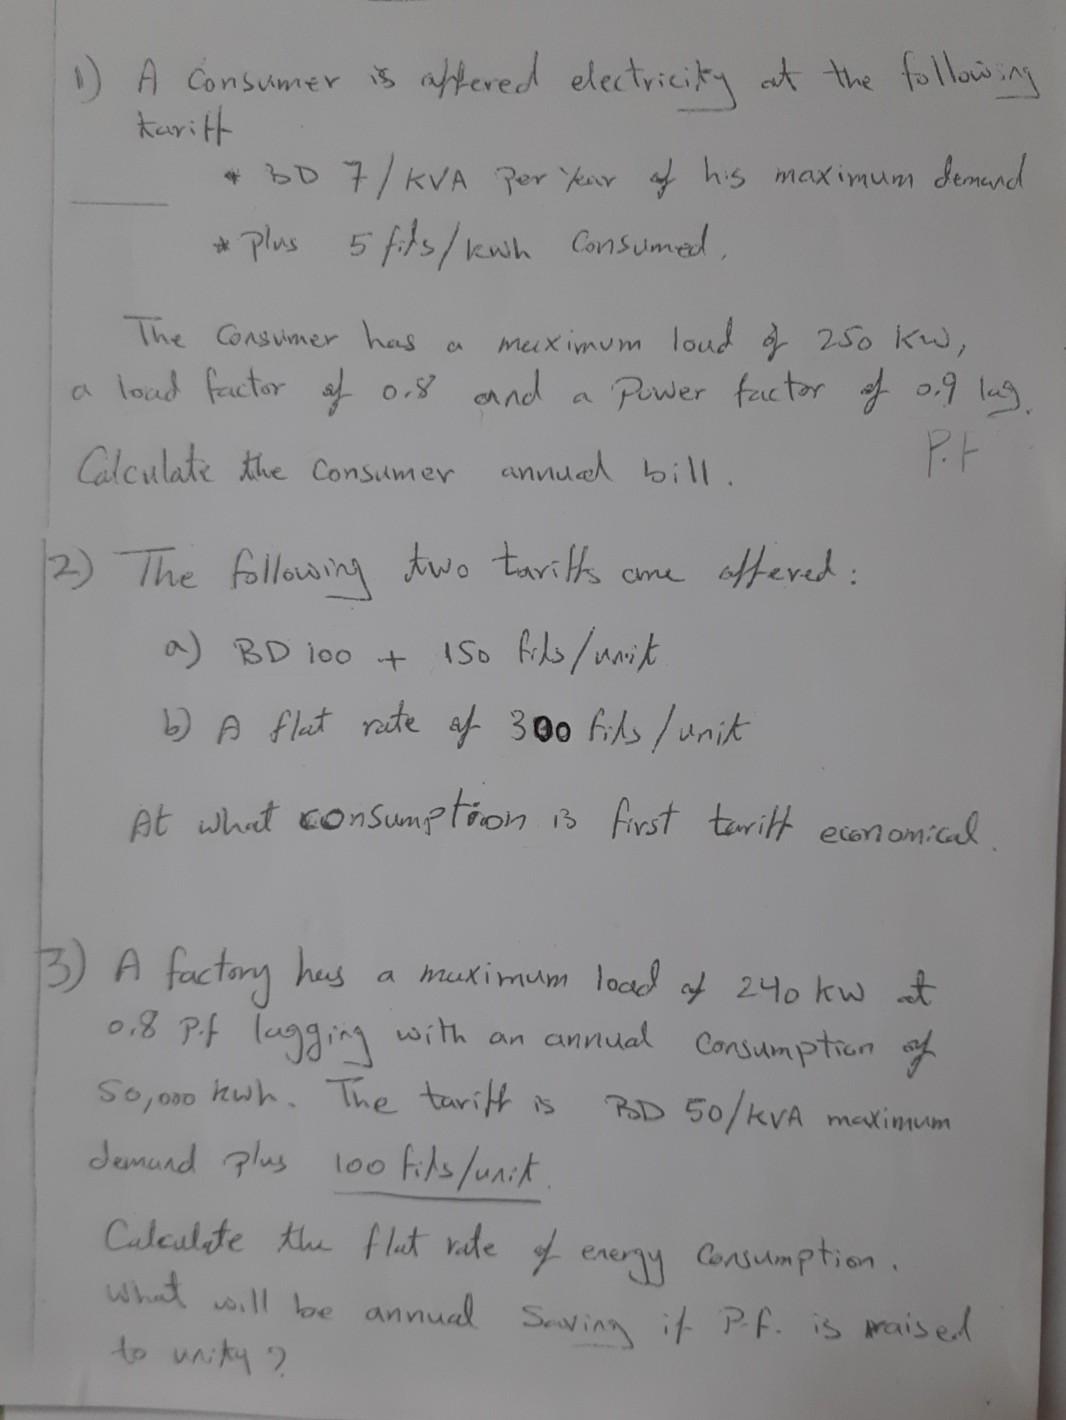 1) A Consumer is offered electricity at the following
tariff
* BD 7/KVA Per Year of his maximum demand
* plus 5 fils/kwh Consumed.
The Consumer has a maximum load of 250 Kw,
a load factor of 0.8 and a Power factor of 0.9 lag.
P.f
Calculate the Consumer annual bill.
2) The following two tariffs are offered:
a) BD 100 + 150 fils/unit
b) A flat rate of 300 fils/unit
At what consumption is first tariff economical.
3) A factory has a maximum load of 240 kw at
0.8 P.f lagging with an annual Consumption of
50,000 kwh. The tariff is BD 50/KVA maximum
demand plus 100 fils/unit.
Calculate the flat rate of energy Consumption.
What will be annual Saving if P.f. is raised
to unity?